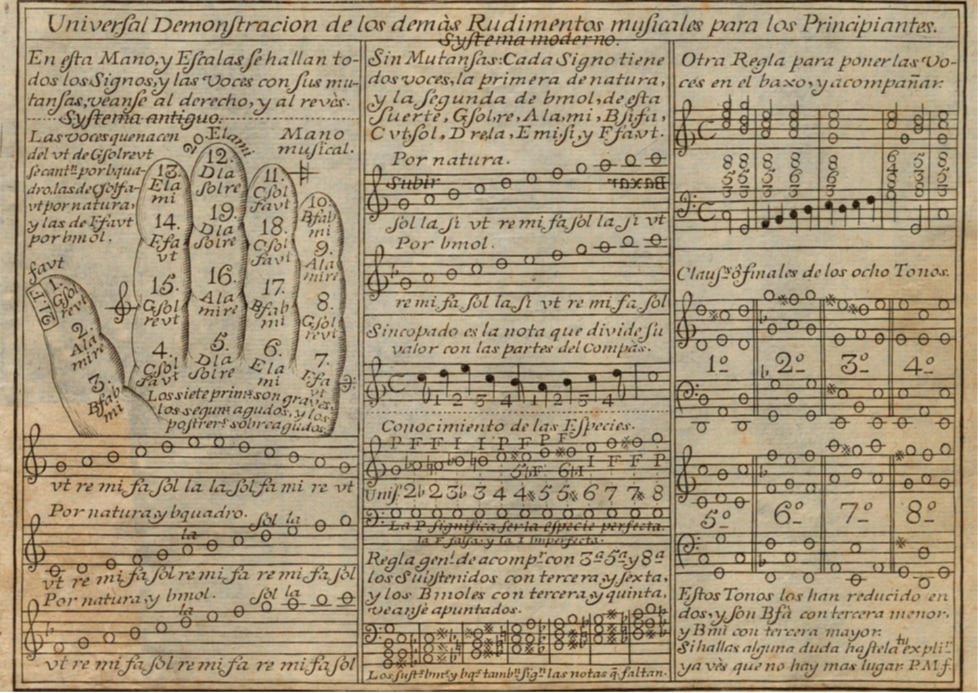 Universal Demonstracion de los demàs Rudimentos musicales para los Principiantes.
En esta Mano, y Escalas se hallan to-
dos los Signos, y las Voces con sus mu-
tansas, veanse al derecho, y al revès.
Systema antiguo.
Las voces que nacen
del vt de Gsolreut
se cantn. por bqua-
dro, las de Csolfa-
vt por natura,
y las de Ffavt
por bmol.
Mano
musical.
20. Elami
favt
1.
Gsol
revt
2.
Ala
mire
3.
Bfab
mi
13.
Ela
mi
14.
Ffa
vt
15.
Gsol
revt
4.
Csol
favt
12.
Dla
solre
19.
Dla
solre
16.
Ala
mire
5.
Dla
Solre
11.
Csol
favt
18.
Csol
favt
17.
Bfab
mi
6.
Ela
mi
10.
Bfab
mi
9.
Ala
mire
8.
Gsol
revt
7.
Ffa
vt
Los siete primos. son graves,
los segun. agudos, y los
postrers. sobreagudos
vt re mi fa sol la la sol fa mi re vt
Por natura y bquadro.
la sol la
vt re mi fa sol re mi fa re mi fa sol
Por natura, y bmol.
la sol la
vt re mi fa sol re mi fa re mi fa sol
Systema moderno.
Sin Mutansas: Cada Signo tiene
dos voces, la primera de natura,
y la segunda de bmol, de esta
suerte, Gsolre, Alami, Bsifa,
Cvtsol, Drela, Emisi, y Ffavt.
Por natura.
Subir Baxar
sol la si vt re mi fa sol la si vt
Por bmol.
re mi fa sol la si vt re mi fa sol
Sincopado es la nota que divide su
valor con las partes del Compàs.
1 2 3 4 1 2 3 4
Conocimiento de las Especies.
P F F I I P F P F
5b F 6b I I F F P
Unis. 2b 2 3b 3 4 4※ 5 5※ 6 7 7※ 8
La P. significa ser la especie perfecta.
la F. falsa, y la I Imperfecta.
Regla genl. de acompr. con 3ª 5ª y 8ª
los Substenidos con tercera, y sexta,
y los Bmoles con tercera, y quinta,
veanse apuntados.
Los sust. bms. y bqs. tambn. sign. las notas q̃ faltan.
Otra Regla para poner las Vo-
ces en el baxo, y acompañar.
8 8 8 8 6 5 8
5 5 5 5 4 5
3 3 3 3 3 3
Claus.s ò finales de los ocho Tonos.
1º 2º 3º 4º
5º 6º 7º 8º
Estos Tonos los han reducido en
dos, y son Bfà con tercera menor,
y Bmi con tercera mayor.
Si hallas alguna duda hastela tu expli.
ya vès que no hay mas lugar. P. M. f.